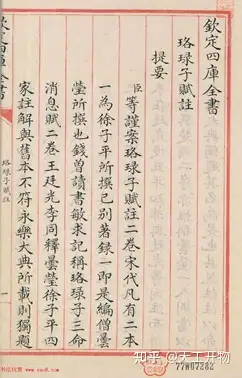 欽定四庫全書
珞琭子賦註
提要
臣等謹案珞琭子賦註二卷宋代凡有二本
一為徐子平所撰已別著錄一即是編僧曇
瑩所撰也錢曾讀書敏求記稱珞琭子三命
消息賦二卷王廷光李同釋曇瑩徐子平四
家註解與舊本不符永樂大典所載則獨題
欽定四庫全書
珞琭子賦註
一
知乎 @天工开物